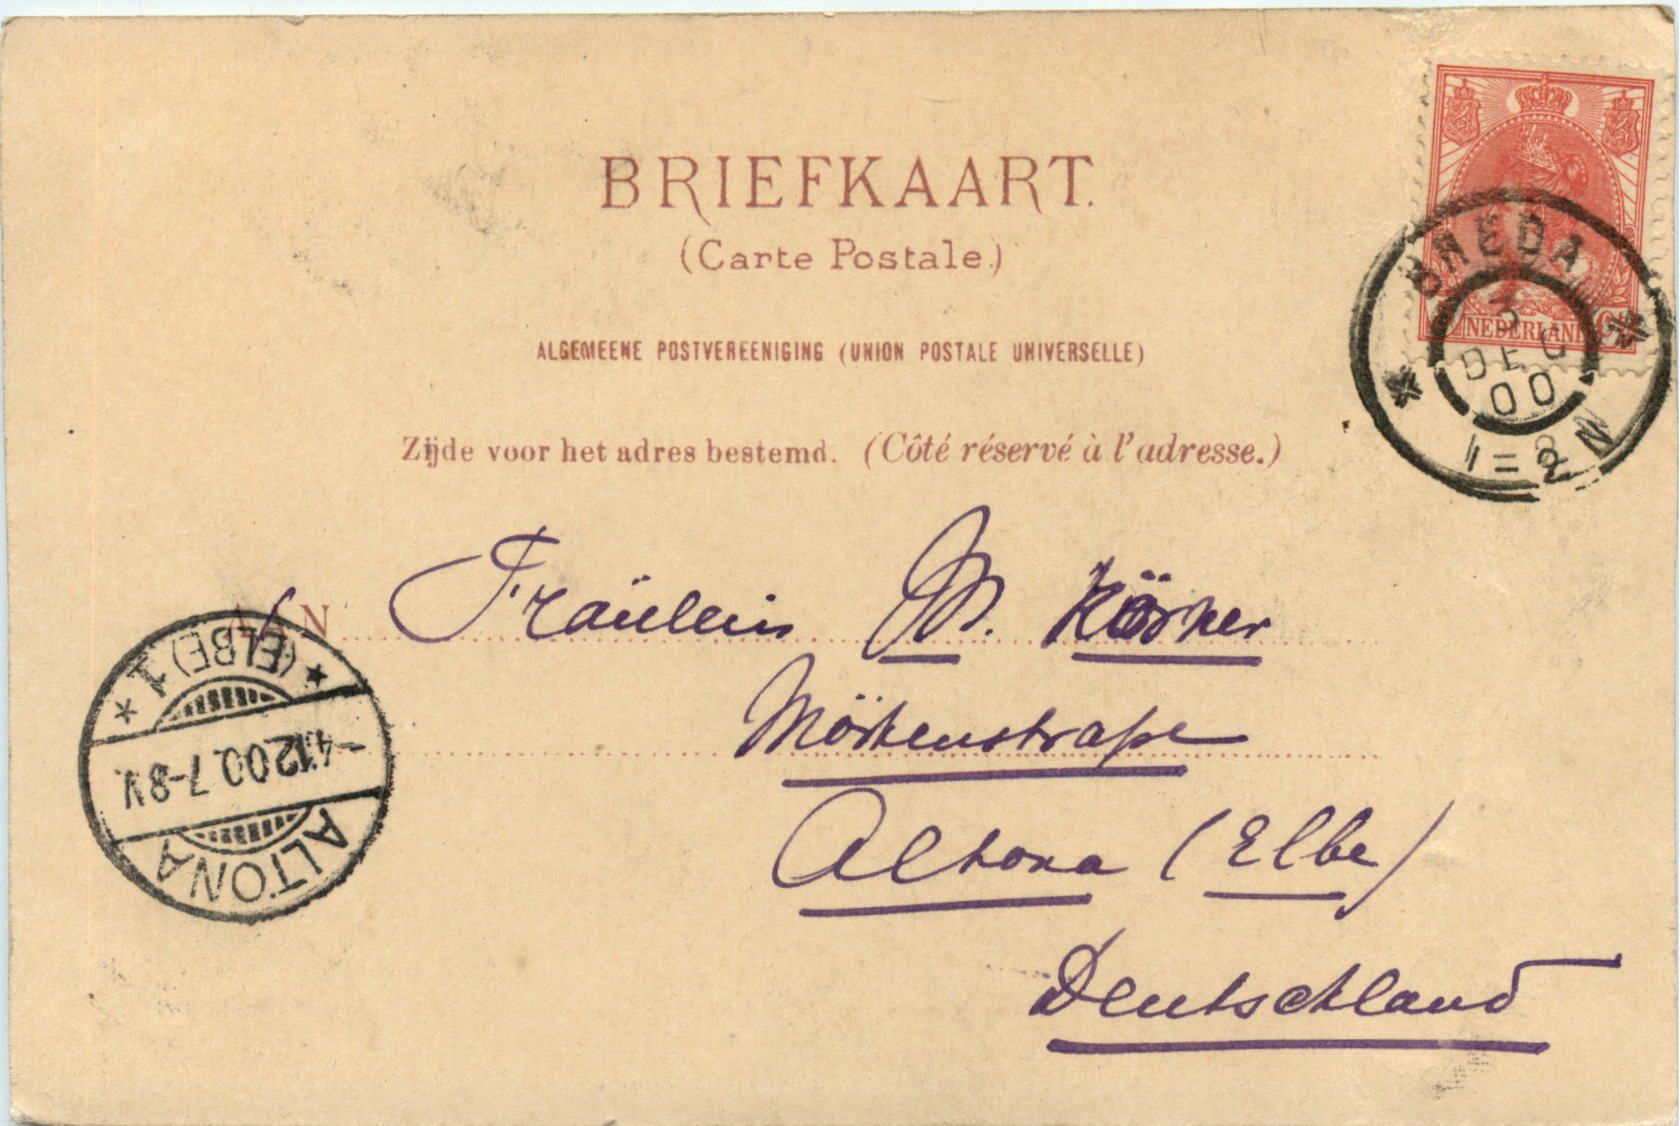 BRIEFKAART.
(Carte Postale.)
ALGEMEENE POSTVEREENIGING (UNION POSTALE UNIVERSELLE)
Zijde voor het adres bestemd. (Côté réservé à l'adresse.)
NEDERLAND
BREDA
3
DEC
00
1=2 N
AAN Fräulein M. Körner
Mörkenstraße
Altona (Elbe)
Deutschland
ALTONA
-4.12.00.7-8V.
(ELBE) 1